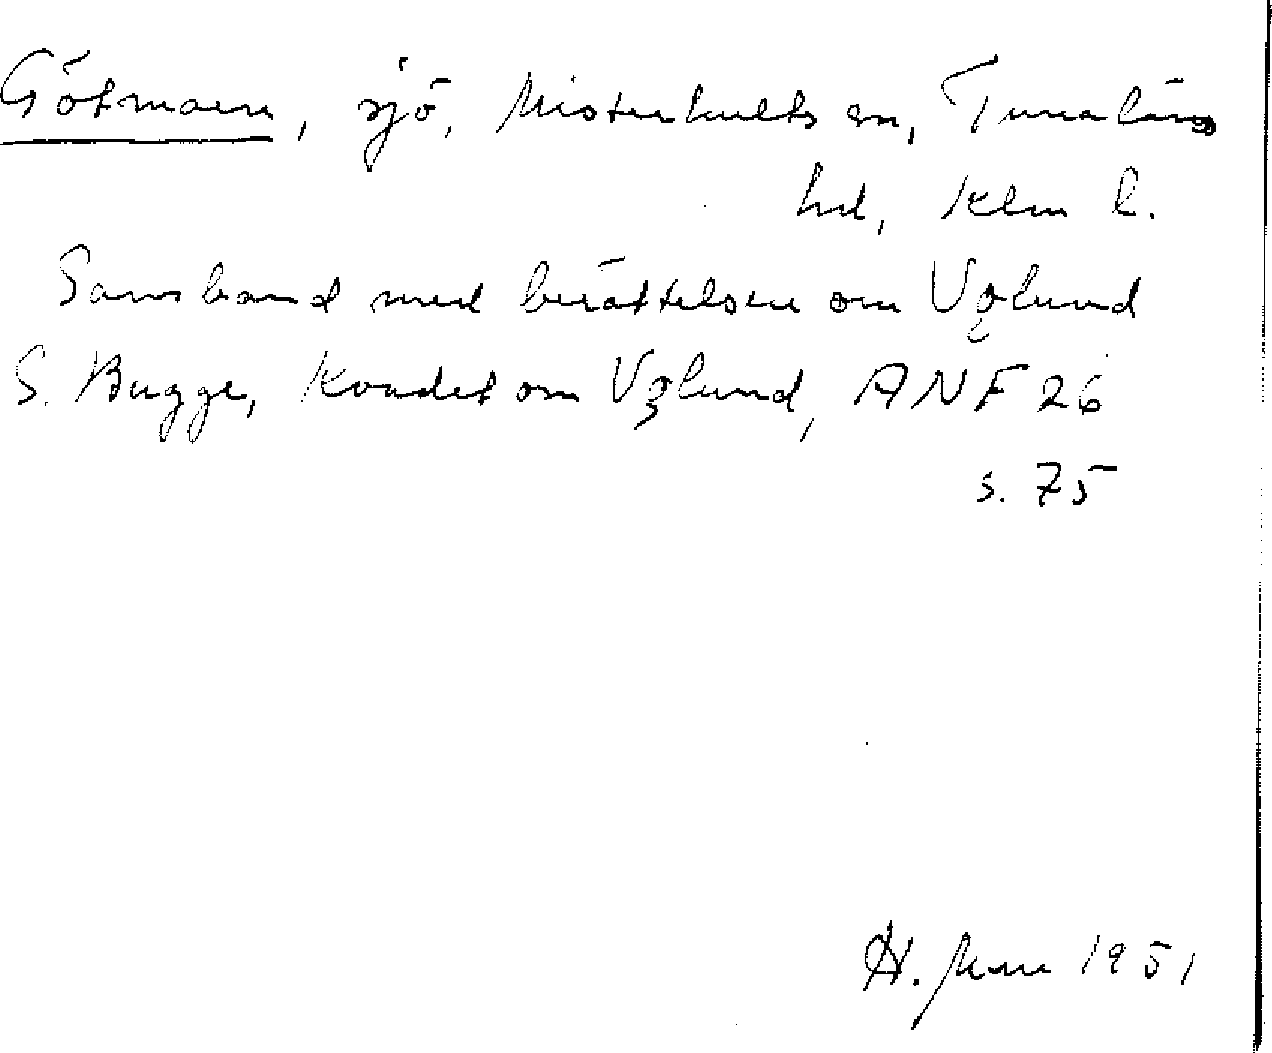 Götmaren, sjö, Misterhults sn, Tunaläns
hd, Klm l.
Samband med berättelsen om Vǫlund
S. Bugge, Kvadet om Vǫlund, ANF 26
s. 75
1951